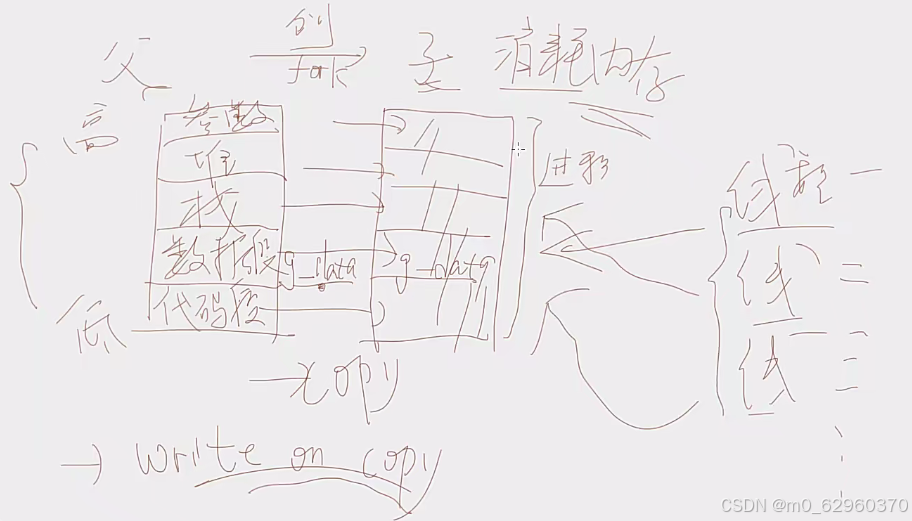 父 创 fork 子 消耗内存
高 参数
堆 进程
栈 线程一
数据段 g_data g_data 线二
代码段
低 线三
→ copy
→ write on copy
CSDN @m0_62960370